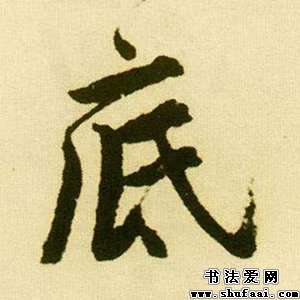 底
书法爱网
www.shufaai.com